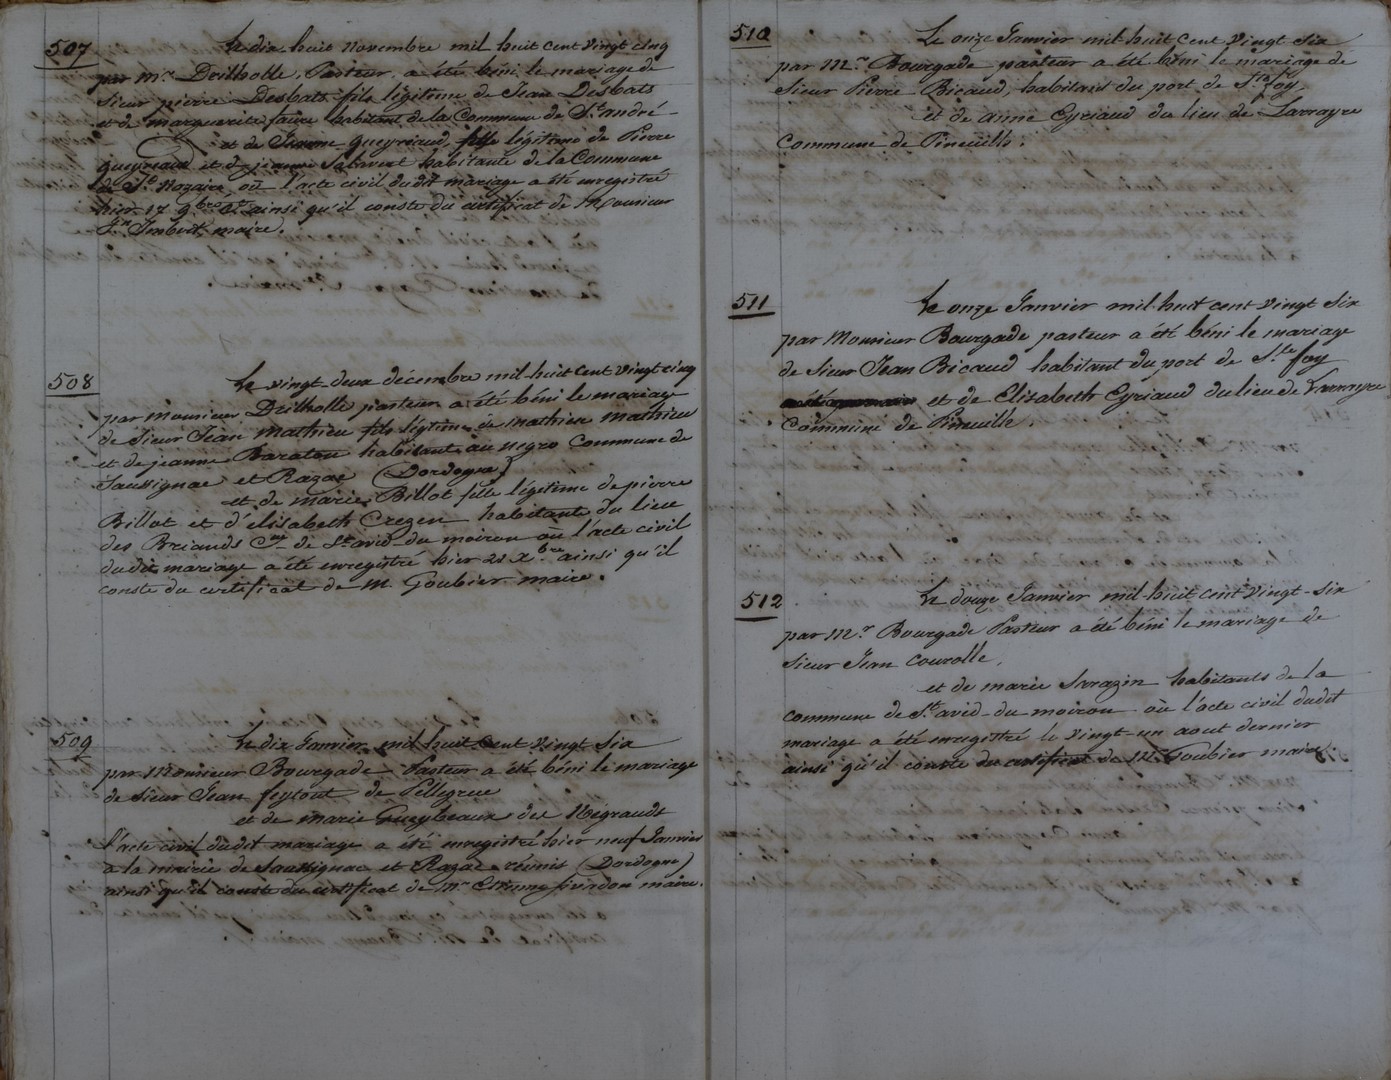 507
Le dix huit novembre mil huit cent vingt cinq
par Mr. Drilholle, Pasteur, a été béni le mariage de
Sieur pierre Desbats fils légitime de Jean Desbats
et de marguerite faure habitant de la Commune de St. andré
et de Jeanne Queyriaud, fille légitime de Pierre
Queyriaud et de jeanne habitante de la Commune
de St. Nazaire, où l'acte civil dudit mariage a été enregistré
hier 17 9bre ainsi qu'il conste du certificat de Monsieur
Jn. Imbert, maire.
508
Le vingt-deux décembre mil-huit cent vingt cinq
par Monsieur Drilholle pasteur a été béni le mariage
de Sieur Jean Mathieu fils légitime de mathieu mathieu
et de jeanne Baraton habitant au negro Commune de
Saussignac et Razac (Dordogne)
et de marie Billot fille légitime de pierre
Billot et d'élisabeth Crezen habitante du lieu
des Briands Cne de St. avid-du moiron où l'acte civil
dudit mariage a été enregistré hier 21 Xbre ainsi qu'il
conste du certificat de M. Goubier maire.
509
Le dix Janvier mil huit Cent vingt Six
par Monsieur Bourgade Pasteur a été béni le mariage
de Sieur Jean feytout de Pellegrue
et de marie des Négrauds
l'acte civil dudit mariage a été enregistré hier neuf Janvier
à la mairie de Saussignac et Razac réunis (Dordogne)
ainsi qu'il conste du certificat de Mr. Etienne maire.
510
Le onze Janvier mil-huit Cent Vingt Six
par Mr. Bourgade pasteur a été béni le mariage de
Sieur Pierre Bicaud, habitant du port de Ste foy,
et de anne Eyriaud du lieu de Larrayre
Commune de Pineuilh.
511
Le onze Janvier mil-huit cent vingt Six
par Monsieur Bourgade pasteur a été béni le mariage
de Sieur Jean Bicaud habitant du port de Ste foy
et de Elisabeth Eyriaud du lieu de Larrayre
Commune de Pineuilh.
512
Le douze Janvier mil-huit cent Vingt-Six
par Mr. Bourgade Pasteur a été béni le mariage de
Sieur Jean Courolle,
et de marie Sarazin habitants de la
commune de St. avid-du moiron où l'acte civil dudit
mariage a été enregistré le vingt-un aout dernier
ainsi qu'il conste du certificat de Mr. Goubier maire